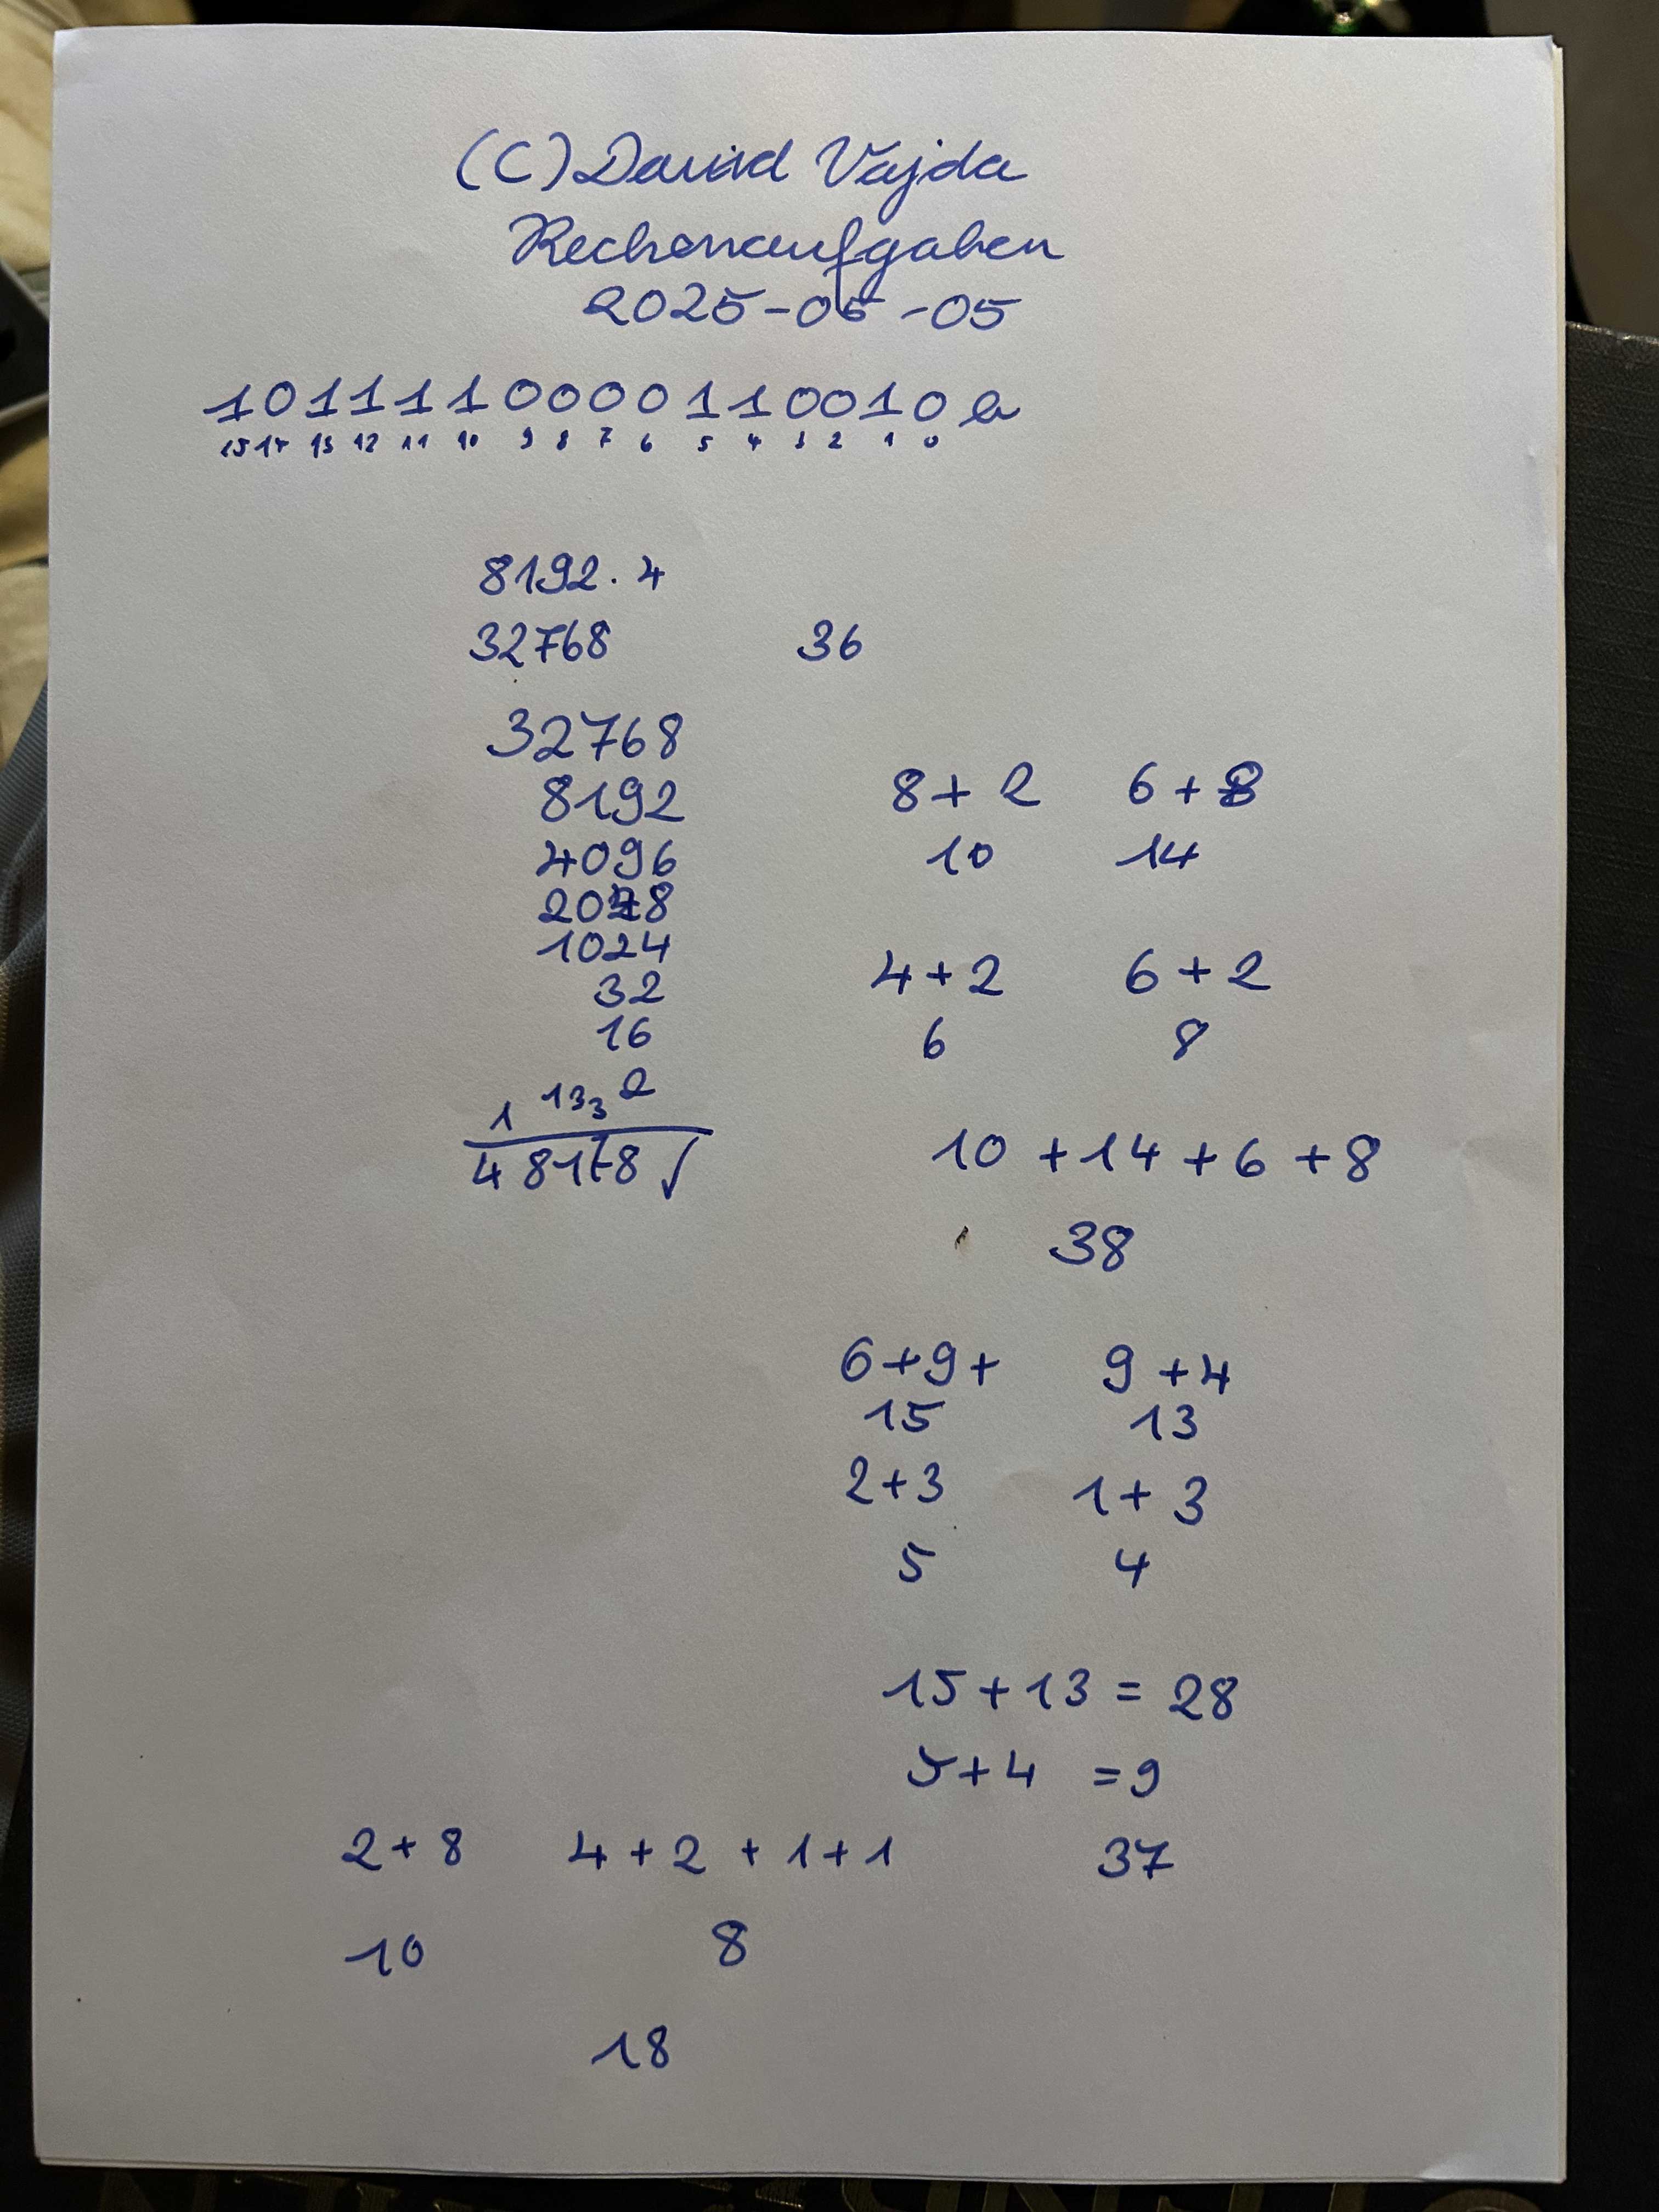 (C) David Vajda
Rechenaufgaben
2025-05-05
1011110000110010b
15 14 13 12 11 10 9 8 7 6 5 4 3 2 1 0
8192 · 4
32768 36
32768
8192
4096
2048
1024
32
16
2
1 1 3 3
48178 √
8 + 2 6 + 8
10 14
4 + 2 6 + 2
6 8
10 + 14 + 6 + 8
38
6 + 9 + 9 + 4
15 13
2 + 3 1 + 3
5 4
15 + 13 = 28
5 + 4 = 9
37
2 + 8 4 + 2 + 1 + 1
10 8
18